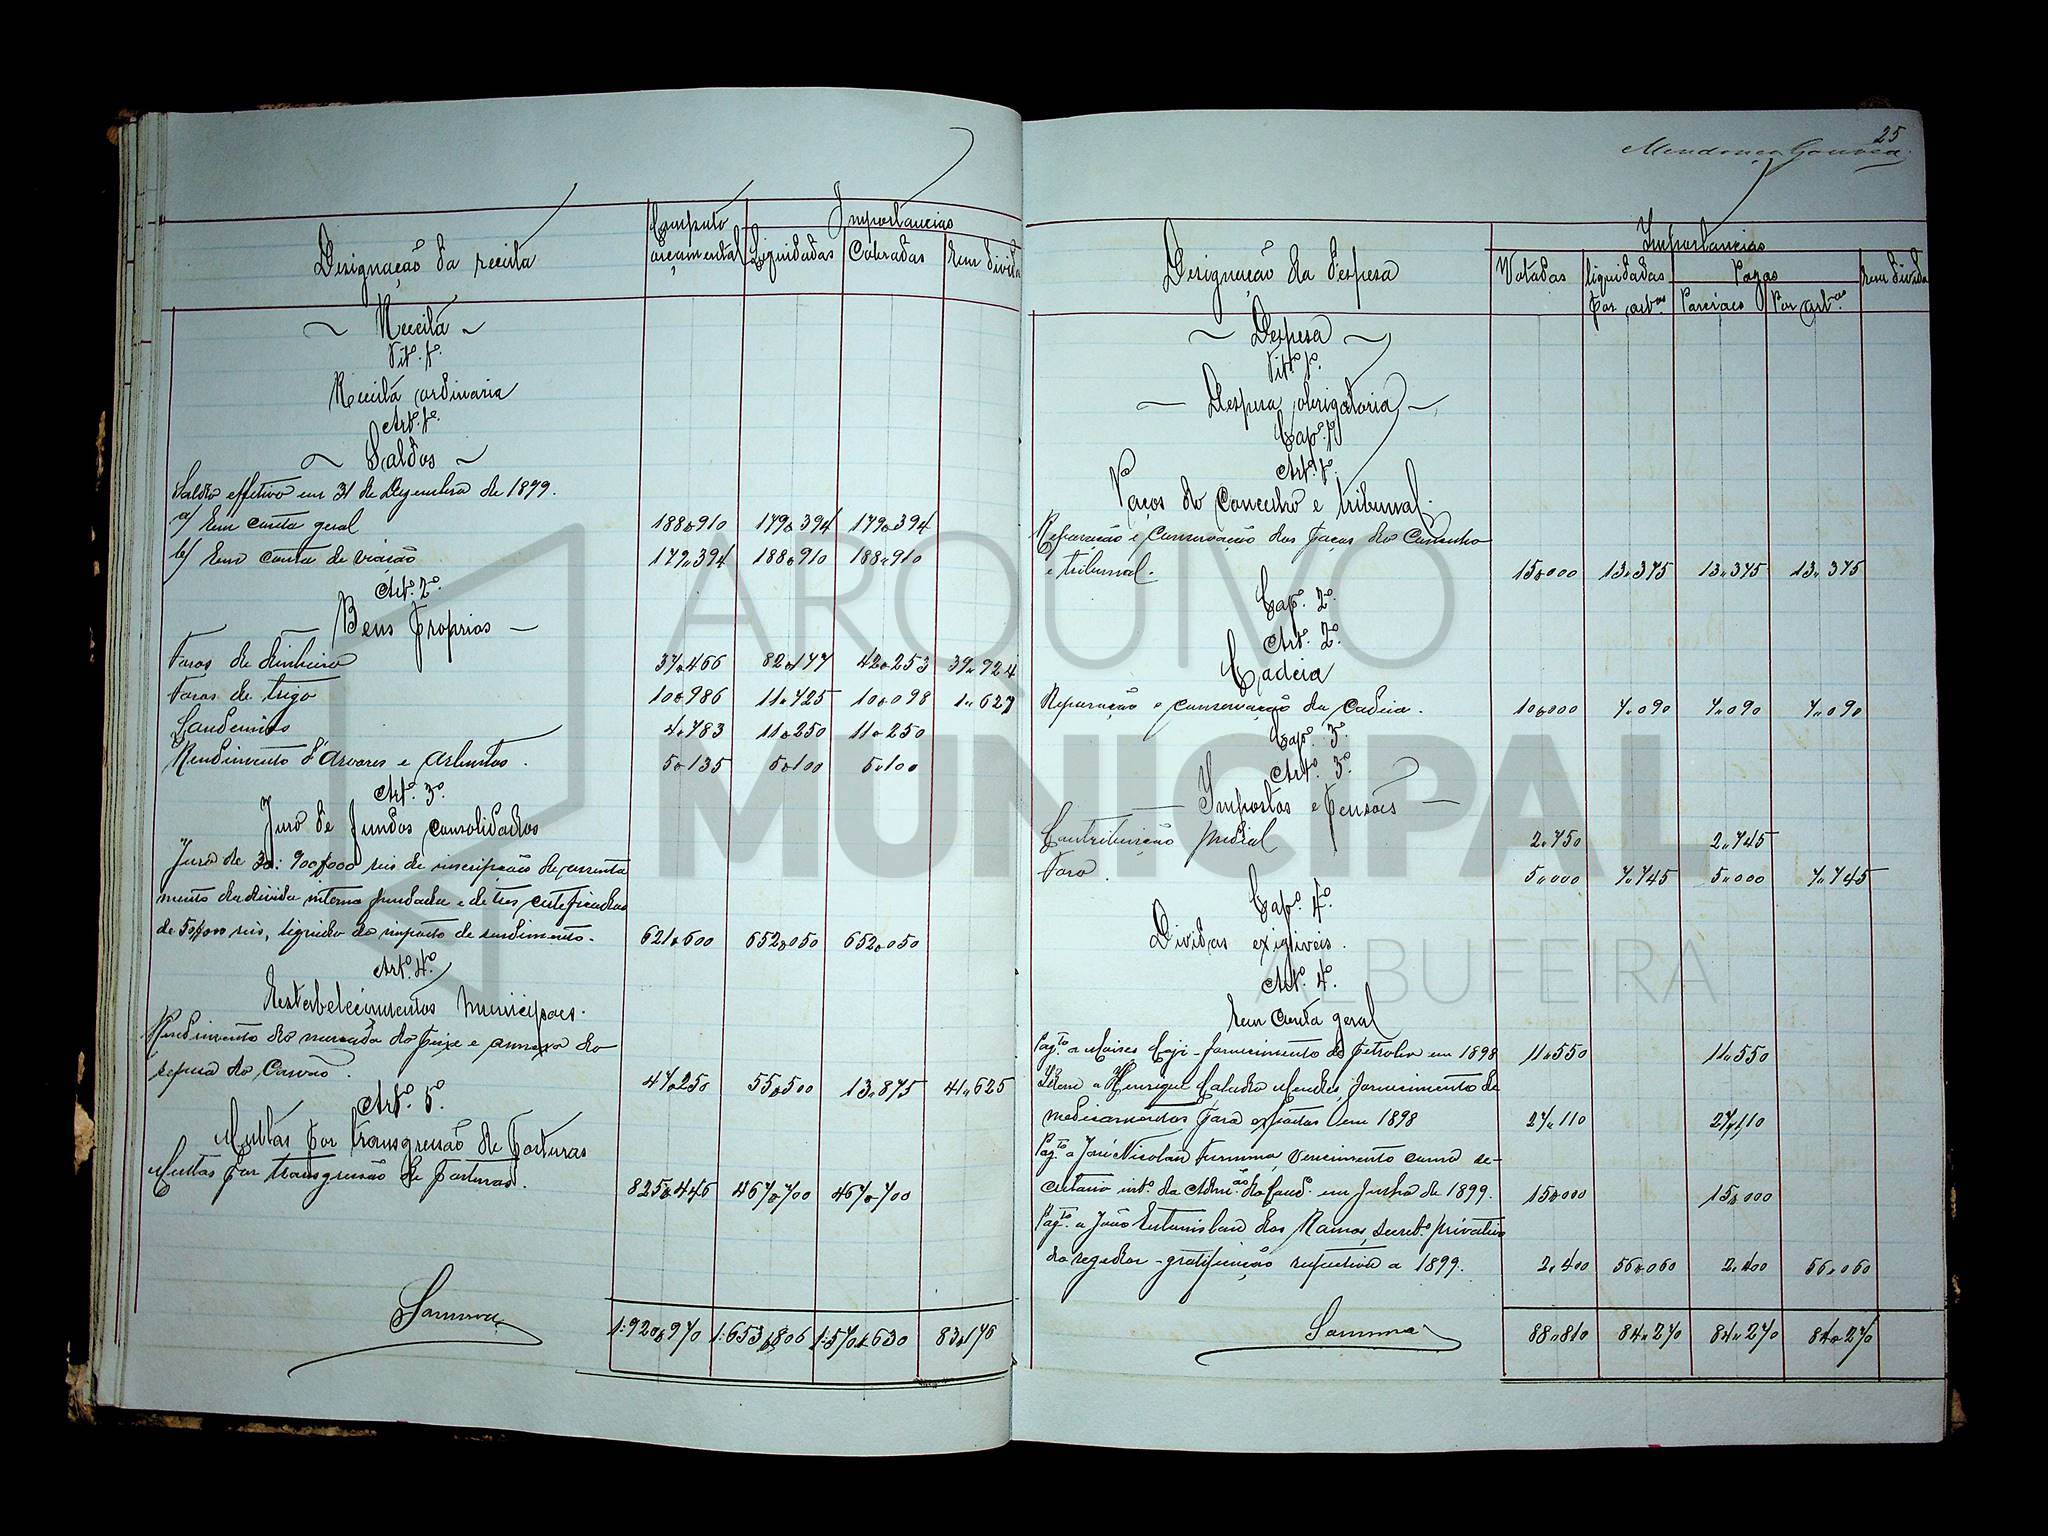 Designação da receita
Computo orçamental
Importancias
Liquidadas
Cobradas
Em divida
~ Receita ~
Titº. 1º.
Receita ordinaria
Artº. 1º.
~ Saldos ~
Saldo effetivo em 31 de Dezembro de 1899.
a) Em conta geral 188$910 179$394 179$394
b) Em conta de viação 179$394 188$910 188$910
Artº. 2º.
— Bens Proprios —
Foros de dinheiro 37$466 82$177 42$253 39$924
Foros de trigo 10$986 11$725 10$098 1$627
Laudemios 4$783 11$250 11$250
Rendimento d'Arvores e Arbustos. 5$135 5$100 5$100
Artº. 3º.
Juro de fundos consolidados
Juro de 30:900$000 reis de inscripções de assenta
mento da divida interna fundada e de tres certificados
de 50$000 reis, liquido do imposto de rendimento. 621$600 652$050 652$050
Artº. 4º.
Estabelecimentos municipaes.
Rendimento do mercado do peixe e annexo do
do Carvão. 47$250 55$500 13$875 41$625
Artº. 5º.
Multas por transgressão de Posturas
Multas por transgressão de Posturas. 825$446 467$700 467$700
Somma 1:920$970 1:653$806 1:570$630 83$176
25
Mendonça Gouvea
Designação da despesa
Importancias
Votadas
liquidadas por artºs.
Pagas
Parciaes
Por artºs.
Em divida
~ Despesa ~
Titº. 1º.
— Despesa obrigatoria —
Capº. 1º
Artº. 1º.
Paços do Concelho e tribunal.
Reparação e conservação dos Paços do Concelho
e tribunal. 15$000 13$375 13$375 13$375
Capº. 2º.
Artº. 2º.
Cadeia
Reparação e conservação da Cadeia. 10$000 7$090 7$090 7$090
Capº. 3º.
Artº. 3º.
— Impostos e Pensões —
Contribuição predial 2$750 2$745
Foro. 5$000 7$745 5$000 7$745
Capº. 4º.
Dividas exigiveis.
Artº. 4º.
Em Conta geral
Pagto. a Moises - fornecimento de Petroleo em 1898 11$550 11$550
Idem a Henrique Calado Mendes, fornecimento de
medicamentos para expostos em 1898 27$110 27$110
Pagto. a José Nicolau, vencimento como se-
cretario intº. da Admão. do Concº. em Junho de 1899. 15$000 15$000
Pagto. a João Estanislau dos Ramos, Secretº. privativo
do regedor - gratificação respectiva a 1899. 2$400 56$060 2$400 56$060
Somma 88$810 84$270 84$270 84$270
ARQUIVO
MUNICIPAL
ALBUFEIRA